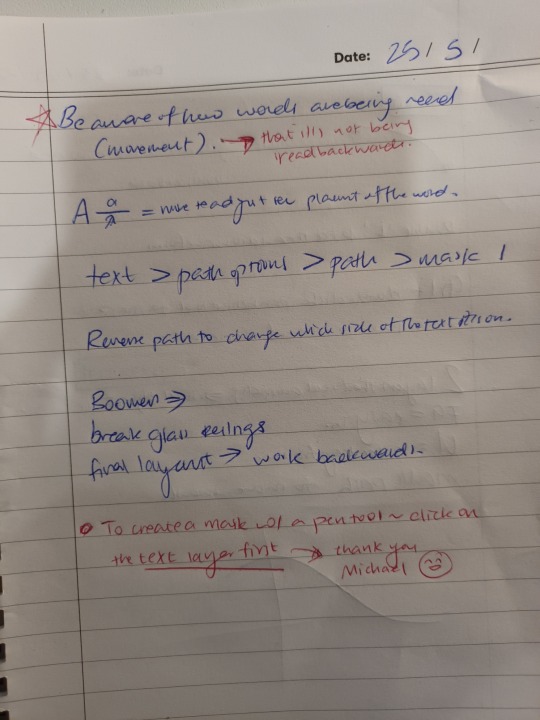 Date: 25/5/
Be aware of how words are being read
(movement). → that it is not being
read backwards.
A a/a = move to adjust the placement of the word.
text > path options > path > mask 1
Reverse path to change which side of the text it is on.
Boomer ⇒
break glass ceilings
final layout → work backwards.
To create a mask w/ a pen tool ~ click on
the text layer first → thank you
Michael